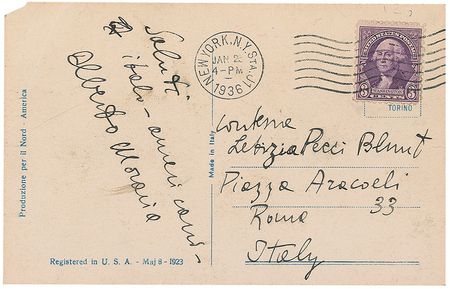 Produzione per il Nord - America
Saluti
italo-americani -
Alberto Moravia
Registered in U. S. A. - Maj 8 - 1923
Made in Italy
NEW YORK, N.Y. STA.
JAN 2
4-PM
1936
UNITED STATES POSTAGE
WASHINGTON
3 CENTS 3
TORINO
Contessa
Letizia Pecci Blunt
Piazza Aracoeli
33
Roma
Italy